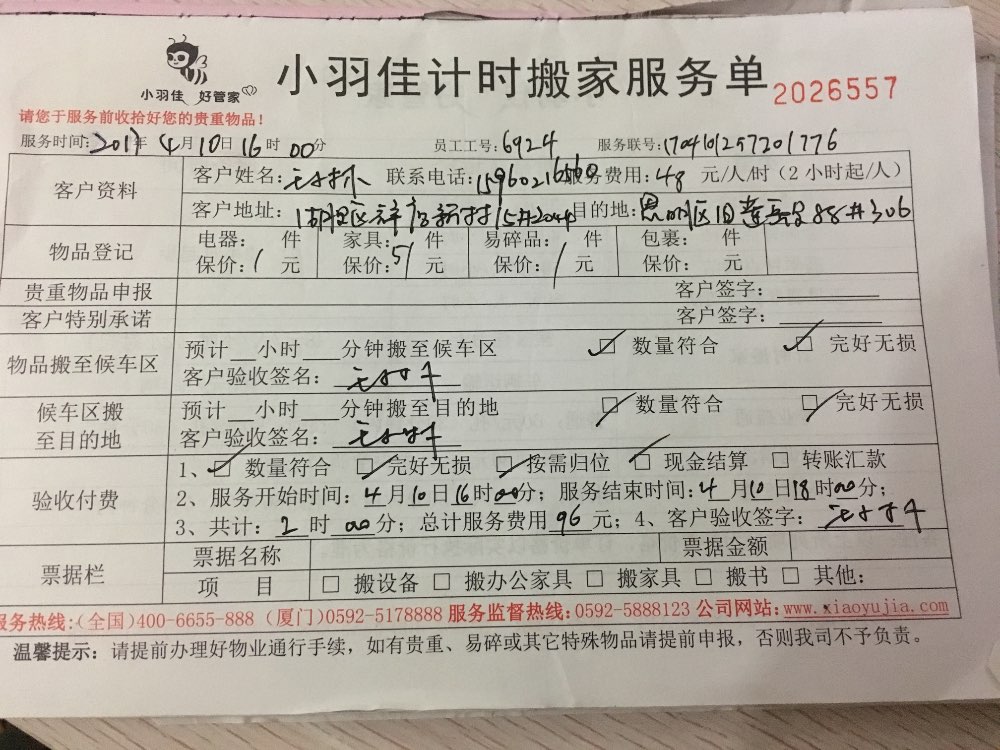 小羽佳 好管家
小羽佳计时搬家服务单 2026557
请您于服务前收拾好您的贵重物品!
服务时间:2017年 4月10日16时00分 员工工号:6924 服务联号:1704101297201776
客户资料 客户姓名: 联系电话: 服务费用:48 元/人/时(2小时起/人)
客户地址: 湖里区 新村15#204 目的地:思明区 88#306
物品登记 电器: 件 家具: 件 易碎品: 件 包裹: 件
保价:/ 元 保价:5/ 元 保价:/ 元 保价: 元
贵重物品申报 客户签字:
客户特别承诺 客户签字:
物品搬至候车区 预计__小时___分钟搬至候车区 ☑ 数量符合 ☑ 完好无损
客户验收签名:
候车区搬至目的地 预计__小时___分钟搬至目的地 ☑ 数量符合 ☑ 完好无损
客户验收签名:
验收付费 1、☑ 数量符合 ☑ 完好无损 ☑ 按需归位 ☑ 现金结算 □ 转账汇款
2、服务开始时间:4月10日16时00分;服务结束时间:4月10日18时00分;
3、共计:2 时 00分;总计服务费用 96 元;4、客户验收签字:
票据栏 票据名称 票据金额
项 目 □ 搬设备 □ 搬办公家具 □ 搬家具 □ 搬书 □ 其他:
服务热线:(全国)400-6655-888 (厦门)0592-5178888 服务监督热线:0592-5888123 公司网站:www.xiaoyujia.com
温馨提示:请提前办理好物业通行手续,如有贵重、易碎或其它特殊物品请提前申报,否则我司不予负责。